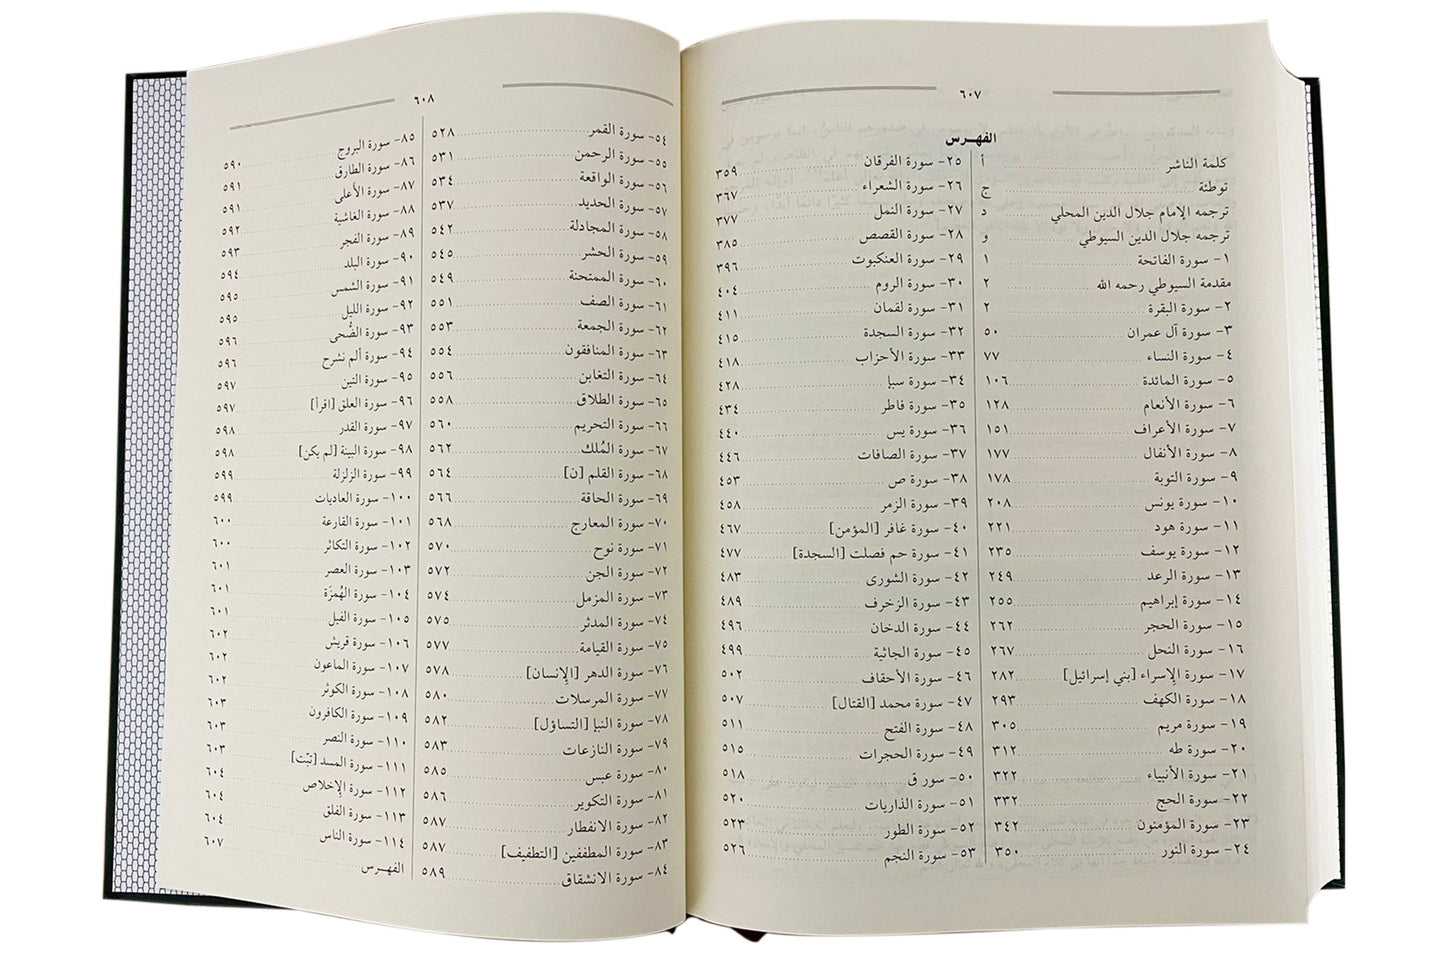 ٦٠٧
الفهرس
كلمة الناشر أ
توطئة ج
ترجمه الإمام جلال الدين المحلي د
ترجمه جلال الدين السيوطي و
١- سورة الفاتحة ١
مقدمة السيوطي رحمه الله ٢
٢- سورة البقرة ٢
٣- سورة آل عمران ٥٠
٤- سورة النساء ٧٧
٥- سورة المائدة ١٠٦
٦- سورة الأنعام ١٢٨
٧- سورة الأعراف ١٥١
٨- سورة الأنفال ١٧٧
٩- سورة التوبة ١٧٨
١٠- سورة يونس ٢٠٨
١١- سورة هود ٢٢١
١٢- سورة يوسف ٢٣٥
١٣- سورة الرعد ٢٤٩
١٤- سورة إبراهيم ٢٥٥
١٥- سورة الحجر ٢٦٢
١٦- سورة النحل ٢٦٧
١٧- سورة الإسراء [بني إسرائيل] ٢٨٢
١٨- سورة الكهف ٢٩٣
١٩- سورة مريم ٣٠٥
٢٠- سورة طه ٣١٢
٢١- سورة الأنبياء ٣٢٢
٢٢- سورة الحج ٣٣٢
٢٣- سورة المؤمنون ٣٤٢
٢٤- سورة النور ٣٥٠
٢٥- سورة الفرقان ٣٥٩
٢٦- سورة الشعراء ٣٦٧
٢٧- سورة النمل ٣٧٧
٢٨- سورة القصص ٣٨٥
٢٩- سورة العنكبوت ٣٩٦
٣٠- سورة الروم ٤٠٤
٣١- سورة لقمان ٤١١
٣٢- سورة السجدة ٤١٥
٣٣- سورة الأحزاب ٤١٨
٣٤- سورة سبإ ٤٢٨
٣٥- سورة فاطر ٤٣٤
٣٦- سورة يس ٤٤٠
٣٧- سورة الصافات ٤٤٦
٣٨- سورة ص ٤٥٣
٣٩- سورة الزمر ٤٥٨
٤٠- سورة غافر [المؤمن] ٤٦٧
٤١- سورة حم فصلت [السجدة] ٤٧٧
٤٢- سورة الشورى ٤٨٣
٤٣- سورة الزخرف ٤٨٩
٤٤- سورة الدخان ٤٩٦
٤٥- سورة الجاثية ٤٩٩
٤٦- سورة الأحقاف ٥٠٢
٤٧- سورة محمد [القتال] ٥٠٧
٤٨- سورة الفتح ٥١١
٤٩- سورة الحجرات ٥١٥
٥٠- سور ق ٥١٨
٥١- سورة الذاريات ٥٢٠
٥٢- سورة الطور ٥٢٣
٥٣- سورة النجم ٥٢٦
٦٠٨
٥٤- سورة القمر ٥٢٨
٥٥- سورة الرحمن ٥٣١
٥٦- سورة الواقعة ٥٣٤
٥٧- سورة الحديد ٥٣٧
٥٨- سورة المجادلة ٥٤٢
٥٩- سورة الحشر ٥٤٥
٦٠- سورة الممتحنة ٥٤٩
٦١- سورة الصف ٥٥١
٦٢- سورة الجمعة ٥٥٣
٦٣- سورة المنافقون ٥٥٤
٦٤- سورة التغابن ٥٥٦
٦٥- سورة الطلاق ٥٥٨
٦٦- سورة التحريم ٥٦٠
٦٧- سورة المُلك ٥٦٢
٦٨- سورة القلم [ن] ٥٦٤
٦٩- سورة الحاقة ٥٦٦
٧٠- سورة المعارج ٥٦٨
٧١- سورة نوح ٥٧٠
٧٢- سورة الجن ٥٧٢
٧٣- سورة المزمل ٥٧٤
٧٤- سورة المدثر ٥٧٥
٧٥- سورة القيامة ٥٧٧
٧٦- سورة الدهر [الإنسان] ٥٧٨
٧٧- سورة المرسلات ٥٨٠
٧٨- سورة النبإ [التساؤل] ٥٨٢
٧٩- سورة النازعات ٥٨٣
٨٠- سورة عبس ٥٨٥
٨١- سورة التكوير ٥٨٦
٨٢- سورة الانفطار ٥٨٧
٨٣- سورة المطففين [التطفيف] ٥٨٧
٨٤- سورة الانشقاق ٥٨٩
٨٥- سورة البروج ٥٩٠
٨٦- سورة الطارق ٥٩١
٨٧- سورة الأعلى ٥٩١
٨٨- سورة الغاشية ٥٩٢
٨٩- سورة الفجر ٥٩٣
٩٠- سورة البلد ٥٩٤
٩١- سورة الشمس ٥٩٥
٩٢- سورة الليل ٥٩٥
٩٣- سورة الضُّحى ٥٩٦
٩٤- سورة ألم نشرح ٥٩٦
٩٥- سورة التين ٥٩٧
٩٦- سورة العلق [اقرأ] ٥٩٧
٩٧- سورة القدر ٥٩٨
٩٨- سورة البينة [لم يكن] ٥٩٨
٩٩- سورة الزلزلة ٥٩٩
١٠٠- سورة العاديات ٥٩٩
١٠١- سورة القارعة ٦٠٠
١٠٢- سورة التكاثر ٦٠٠
١٠٣- سورة العصر ٦٠١
١٠٤- سورة الهُمزَة ٦٠١
١٠٥- سورة الفيل ٦٠١
١٠٦- سورة قريش ٦٠٢
١٠٧- سورة الماعون ٦٠٢
١٠٨- سورة الكوثر ٦٠٢
١٠٩- سورة الكافرون ٦٠٣
١١٠- سورة النصر ٦٠٣
١١١- سورة المسد [تبّت] ٦٠٣
١١٢- سورة الإخلاص ٦٠٤
١١٣- سورة الفلق ٦٠٤
١١٤- سورة الناس ٦٠٤
الفهرس ٦٠٧